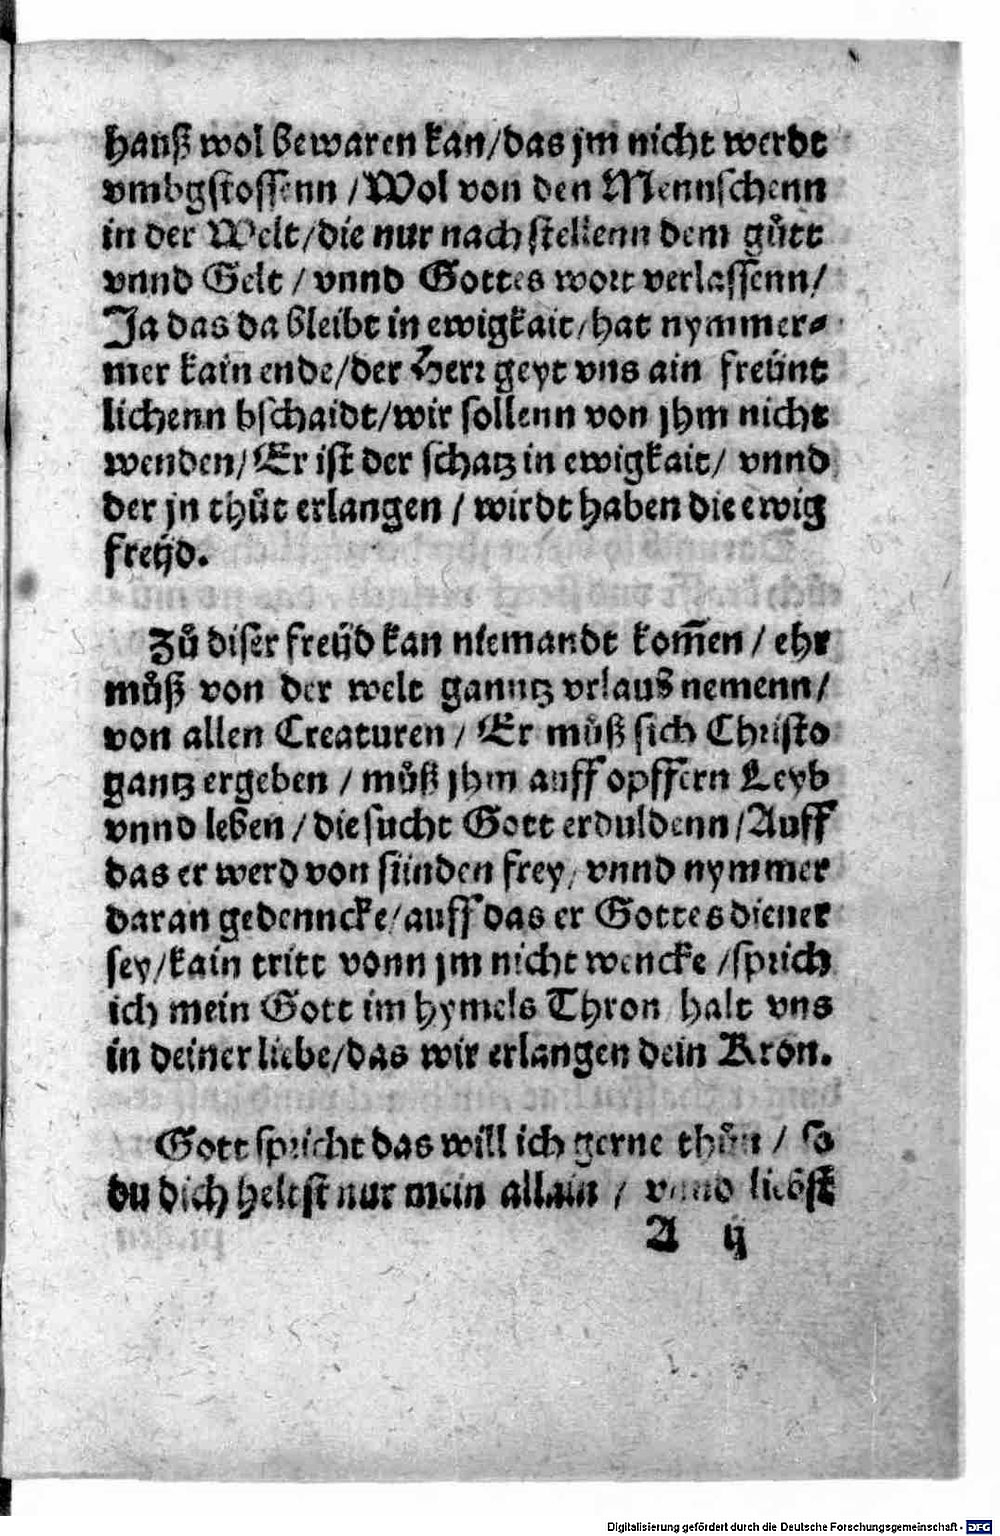 hauß wol bewaren kan/das jm nicht werdt
vmbgstossenn /Wol von den Mennschenn
in der Welt/die nur nach stellenn dem gůtt
vnnd Gelt / vnnd Gottes wort verlassenn/
Ja das da bleibt in ewigkait/hat nymmer⸗
mer kain ende/der Herr geyt vns ain freünt
lichenn bschaidt/wir sollenn von jhm nicht
wenden/Er ist der schatz in ewigkait/ vnnd
der jn thůt erlangen / wirdt haben die ewig
freÿd.
Zů diser freÿd kan niemandt kom̄en / ehr
můß von der welt ganntz vrlaub nemenn/
von allen Creaturen / Er můß sich Christo
gantz ergeben / můß jhm auff opffern Leyb
vnnd leben / die sucht Gott erduldenn /Auff
das er werd von sünden frey/ vnnd nymmer
daran gedenncke/auff das er Gottes diener
sey/kain tritt vonn jm nicht wencke /sprich
ich mein Gott im hymels Thron halt vns
in deiner liebe/das wir erlangen dein Kron.
Gott spricht das will ich gerne thůn / so
du dich heltst nur mein allain / vnnd liebst
A ij
Digitalisierung gefördert durch die Deutsche Forschungsgemeinschaft - DFG